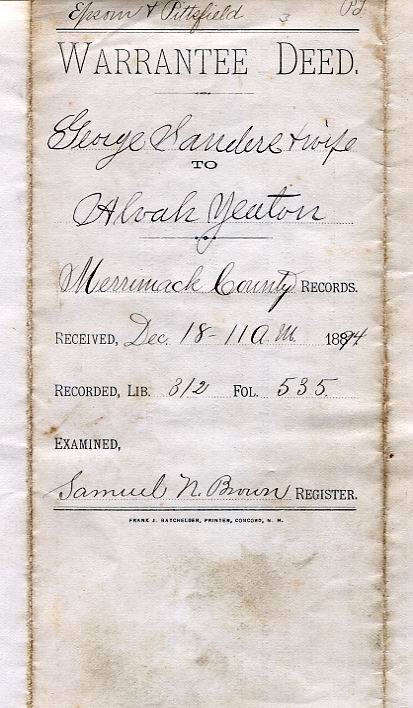 Epsom & Pittsfield Pd
WARRANTEE DEED.
George Sanders & wife
TO
Alvah Yeaton
Merrimack County RECORDS.
RECEIVED, Dec. 18 - 11 A.M. 1894
RECORDED, LIB. 312 FOL. 535.
EXAMINED,
Samuel N. Brown REGISTER.
FRANK J. BATCHELDER, PRINTER, CONCORD, N. H.